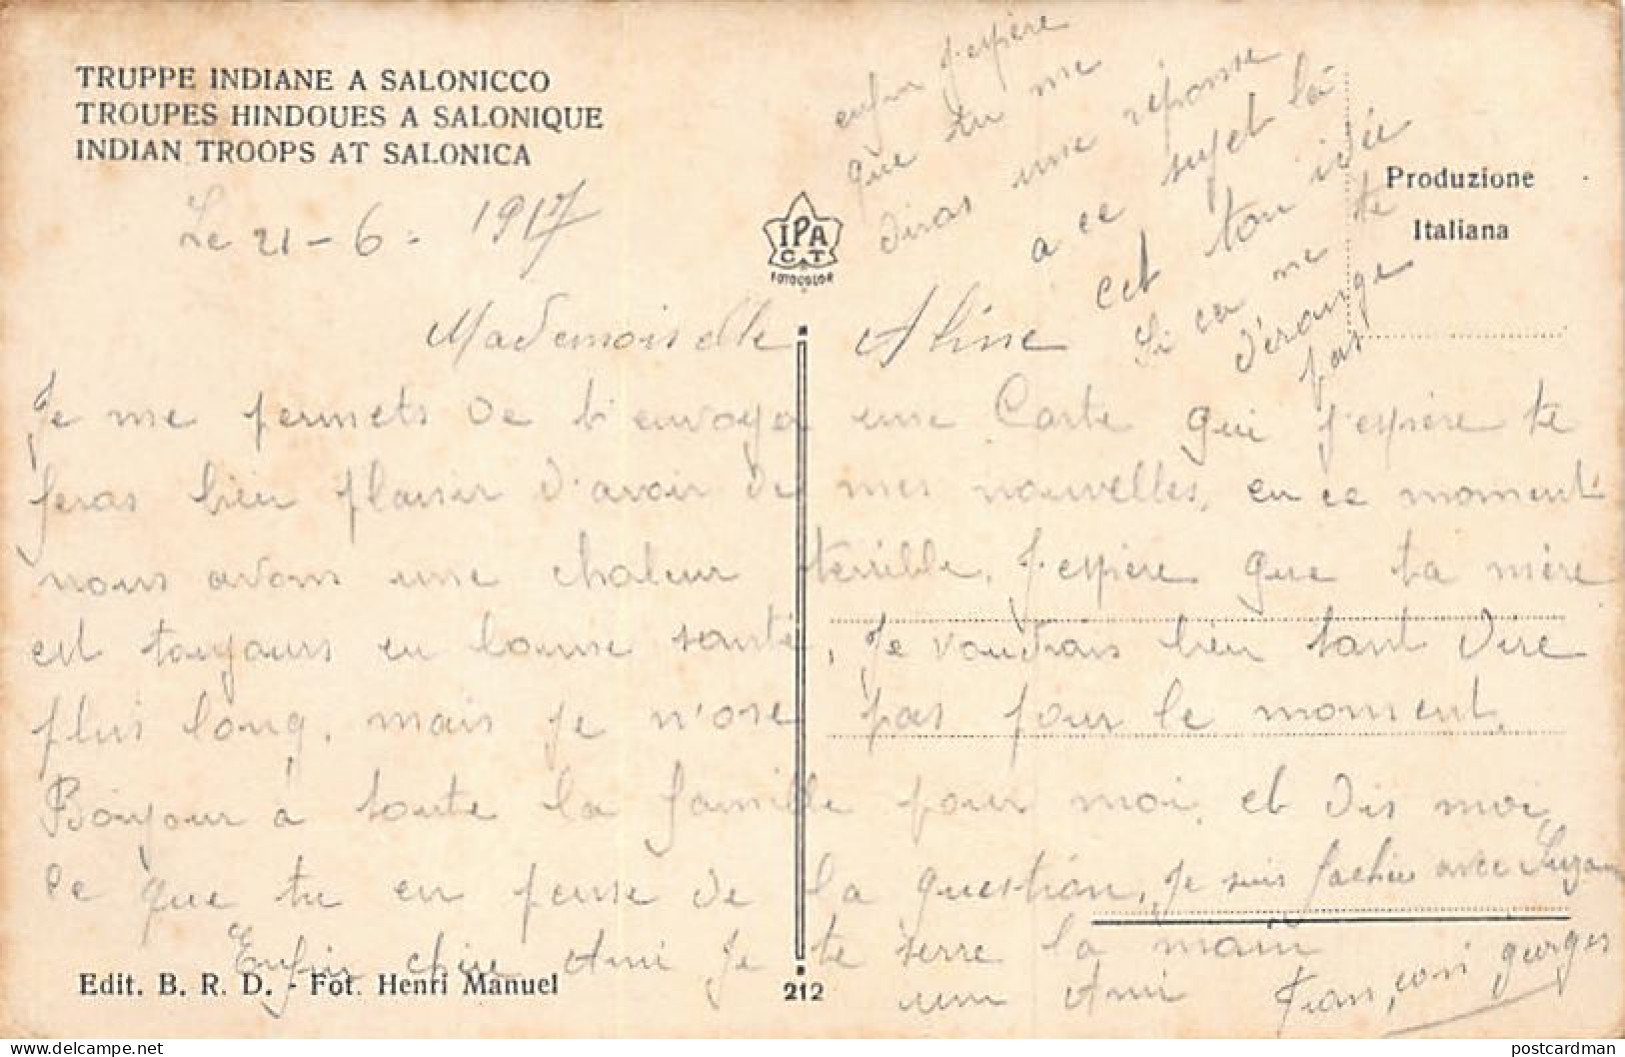 TRUPPE INDIANE A SALONICCO
TROUPES HINDOUES A SALONIQUE
INDIAN TROOPS AT SALONICA
Le 21-6-1917
IPA
C T
FOTOCOLOR
Produzione
Italiana
enfin j'espère
que tu me
diras une réponse
a ce sujet là
cet ton idée
si ca ne te
dérange
pas
Mademoiselle Aline
Je me permets de t'envoyer une Carte qui j'espère te
feras bien plaisir d'avoir de mes nouvelles, en ce moment
nous avons une chaleur terrible, J'espère que ta mère
est toujours en bonne santé, Je voudrais bien tant dire
plus long, mais je n'ose pas pour le moment.
Bonjour à toute la famille pour moi, et dis moi
ce que tu en pense de la question, Je suis fachée avec Suzanne
Enfin chère Ami Je te serre la main
un Ami François georges
Edit. B. R. D. - Fot. Henri Manuel
212
postcardman